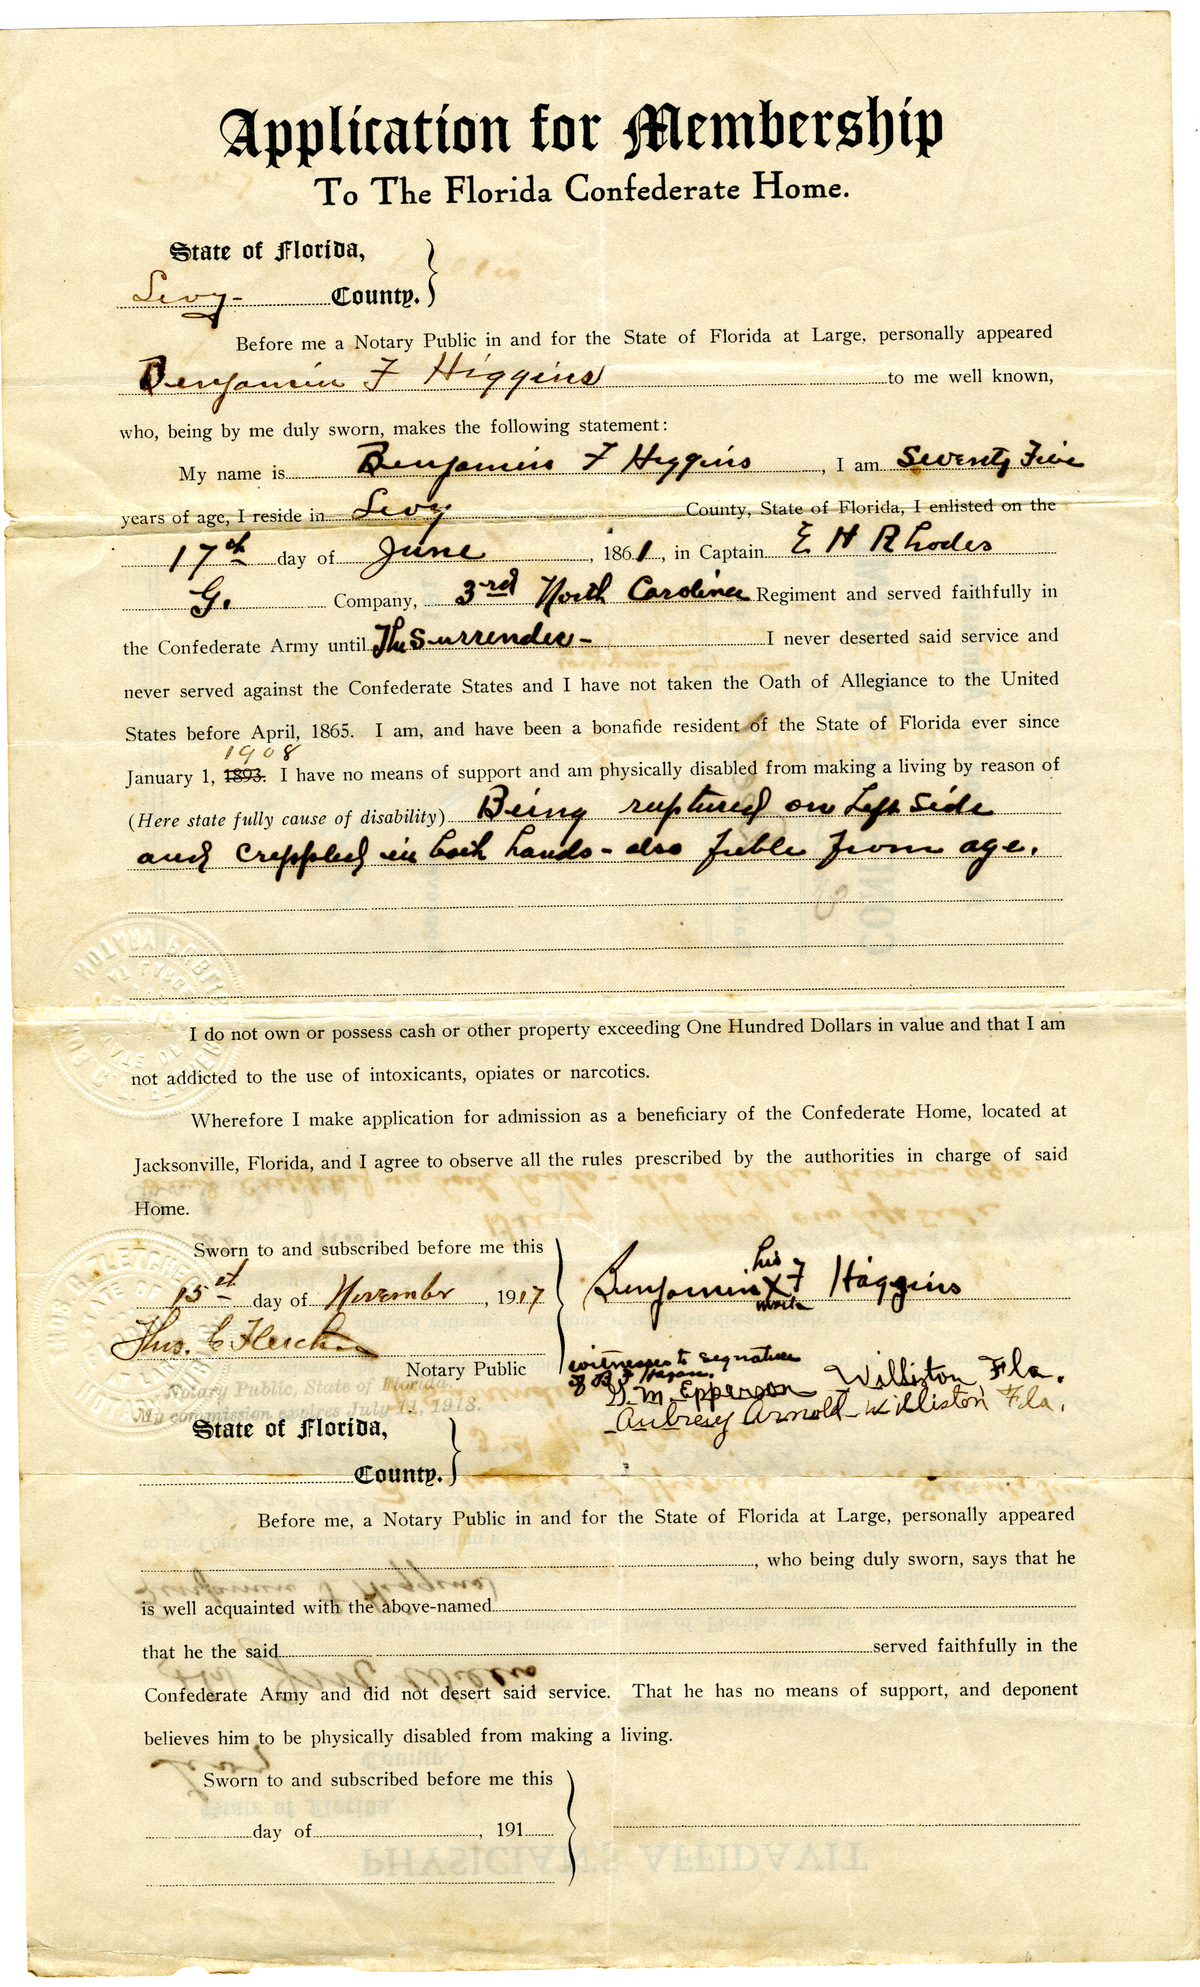 Application for Membership
To The Florida Confederate Home.
State of Florida,
Levy- County.
Before me a Notary Public in and for the State of Florida at Large, personally appeared
Benjamin F Higgins to me well known,
who, being by me duly sworn, makes the following statement:
My name is Benjamin F Higgins, I am Seventy Five
years of age, I reside in Levy County, State of Florida, I enlisted on the
17th day of June, 1861, in Captain E H Rhodes
G. Company, 3rd North Carolina Regiment and served faithfully in
the Confederate Army until The Surrender- I never deserted said service and
never served against the Confederate States and I have not taken the Oath of Allegiance to the United
States before April, 1865. I am, and have been a bonafide resident of the State of Florida ever since
1908
January 1, 1893. I have no means of support and am physically disabled from making a living by reason of
(Here state fully cause of disability) Being ruptured on Left Side
and crippled in both hands - also feble from age.
I do not own or possess cash or other property exceeding One Hundred Dollars in value and that I am
not addicted to the use of intoxicants, opiates or narcotics.
Wherefore I make application for admission as a beneficiary of the Confederate Home, located at
Jacksonville, Florida, and I agree to observe all the rules prescribed by the authorities in charge of said
Home.
Sworn to and subscribed before me this
15th day of November, 1917
his
Benjamin X F Higgins
mark
Thos. B Fletcher
Notary Public
Notary Public, State of Florida.
My commission expires July 11, 1918.
witnesses to signature
of B F
G. M. Epperson Williston Fla.
Aubrey Arnold - Williston Fla.
State of Florida,
County.
Before me, a Notary Public in and for the State of Florida at Large, personally appeared
, who being duly sworn, says that he
is well acquainted with the above-named
that he the said served faithfully in the
Confederate Army and did not desert said service. That he has no means of support, and deponent
believes him to be physically disabled from making a living.
Sworn to and subscribed before me this
day of , 191